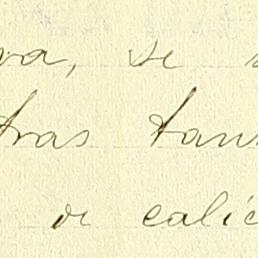 va, se
tras tan
de calic